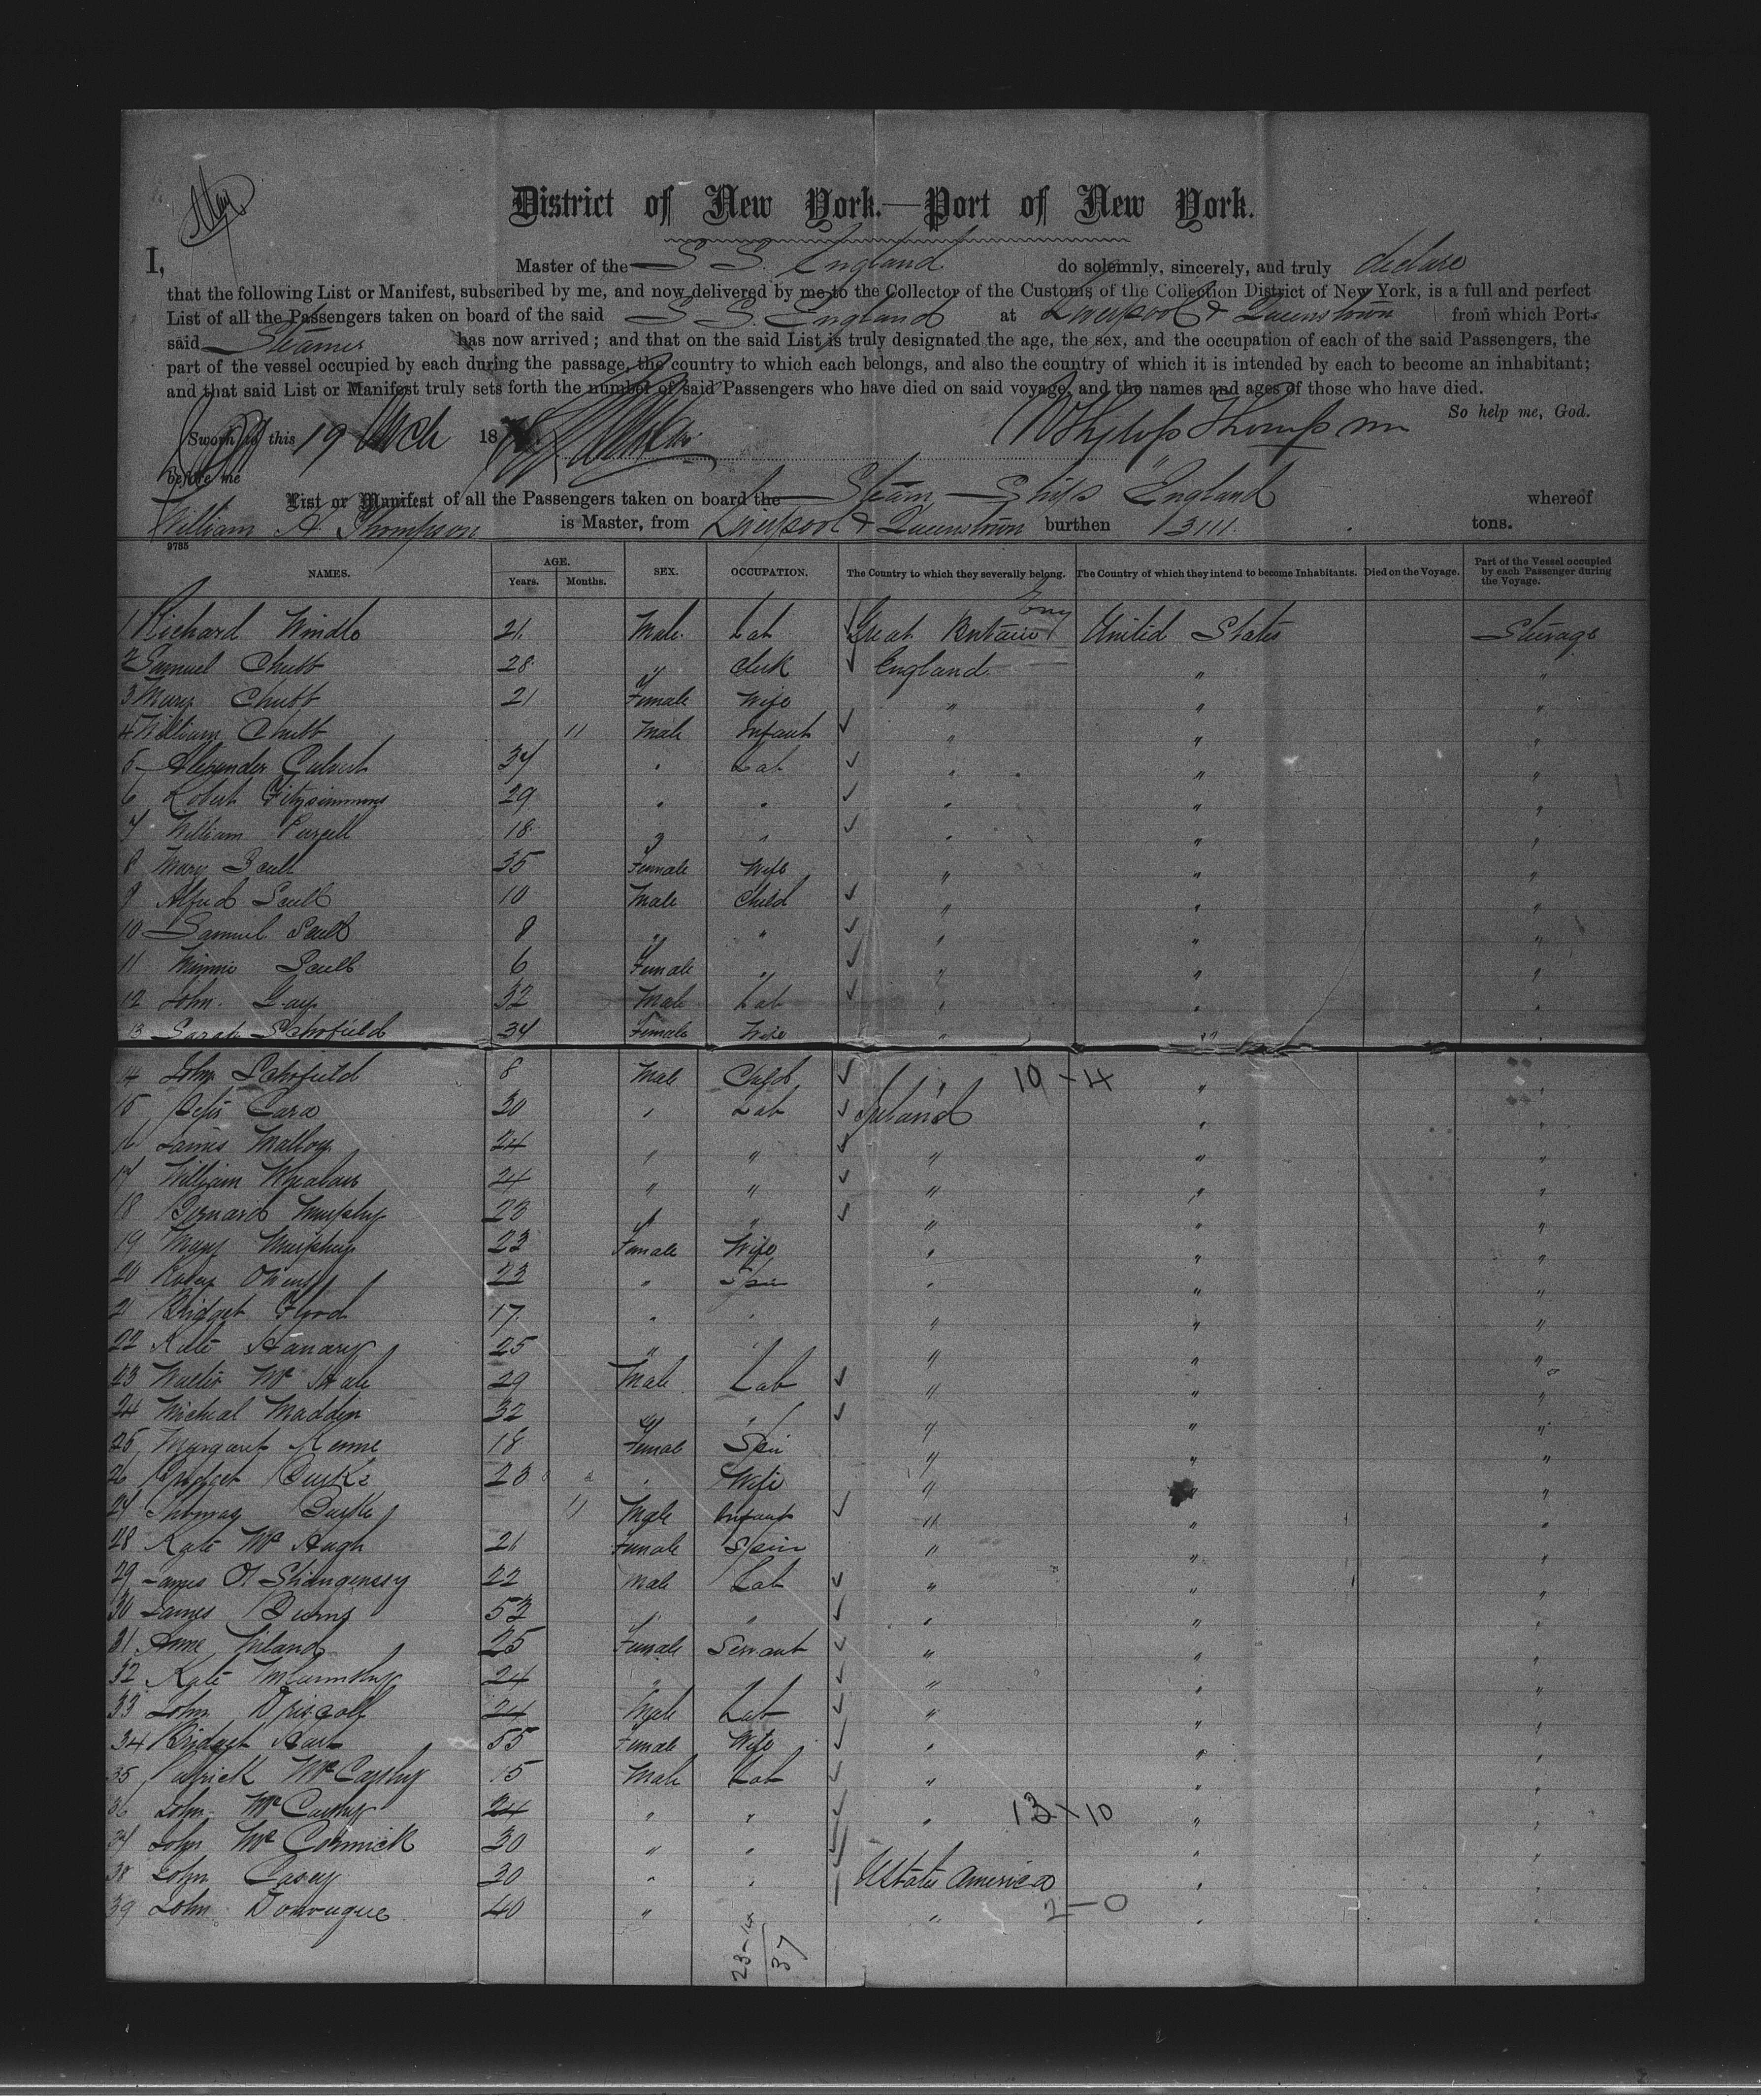 District of New York.—Port of New York.
I, Master of the S S. England do solemnly, sincerely, and truly declare
that the following List or Manifest, subscribed by me, and now delivered by me to the Collector of the Customs of the Collection District of New York, is a full and perfect
List of all the Passengers taken on board of the said S S. England at Liverpool & Queenstown from which Port
said Steamer has now arrived; and that on the said List is truly designated the age, the sex, and the occupation of each of the said Passengers, the
part of the vessel occupied by each during the passage, the country to which each belongs, and also the country of which it is intended by each to become an inhabitant;
and that said List or Manifest truly sets forth the number of said Passengers who have died on said voyage, and the names and ages of those who have died.
So help me, God.
Sworn to this 19 Mch 18
before me
List or Manifest of all the Passengers taken on board the Steam Ship England whereof
William A Thompson is Master, from Liverpool & Queenstown burthen tons.
9785
NAMES. AGE. Years. Months. SEX. OCCUPATION. The Country to which they severally belong. The Country of which they intend to become Inhabitants. Died on the Voyage. Part of the Vessel occupied by each Passenger during the Voyage.
Eng
1 Richard Windle 21 Male Lab Great Britain United States Steerage
2 Samuel Chubb 28 " Clerk England " "
3 Mary Chubb 21 Female Wife " " "
4 William Chubb 11 Male Infant " " "
5 Alexander 37 " Lab " " "
6 Robert Fitzsimmons 29 " " " " "
7 William Purcell 18 " " " " "
8 Mary Scull 35 Female Wife " " "
9 Alfred Scull 10 Male Child " " "
10 Samuel Scull 8 " " " " "
11 Minnie Scull 6 Female " " " "
12 John Gay 32 Male Lab " " "
13 Sarah Schofield 34 Female Wife " " "
14 John Schofield 8 Male Child " 10-4 " "
15 Peter 30 " Lab Ireland " "
16 James Malloy 24 " " " " "
17 William Whealan 24 " " " " "
18 Bernard Murphy 23 " " " " "
19 Mary Murphy 23 Female Wife " " "
20 Owens 23 " Spin " " "
21 Bridget Flood 17 " " " " "
22 Kate Hanary 25 " " " " "
23 Walter Mc Hale 29 Male Lab " " "
24 Micheal Madden 32 " " " " "
25 Margaret 18 Female Spin " " "
26 Bridget Burke 23 " Wife " " "
27 Thomas Burke 11 Male Infant " " "
28 Kate Mc Hugh 21 Female Spin " " "
29 James O'Shaugnessy 22 Male Lab " " "
30 James Burns 52 " " " " "
31 Anne Niland 25 Female Servant " " "
32 Kate 24 " " " "
33 John Driscoll 24 Male Lab " " "
34 Bridget 55 Female Wife " " "
35 Patrick Mc Carthy 15 Male Lab " " "
36 John Mc Carthy 24 " " " 13-10 " "
37 John Mc Cormick 30 " " " "
38 John Casey 30 " " UStates America " "
39 John Donougue 40 " " 2-0 " "
23-14
37